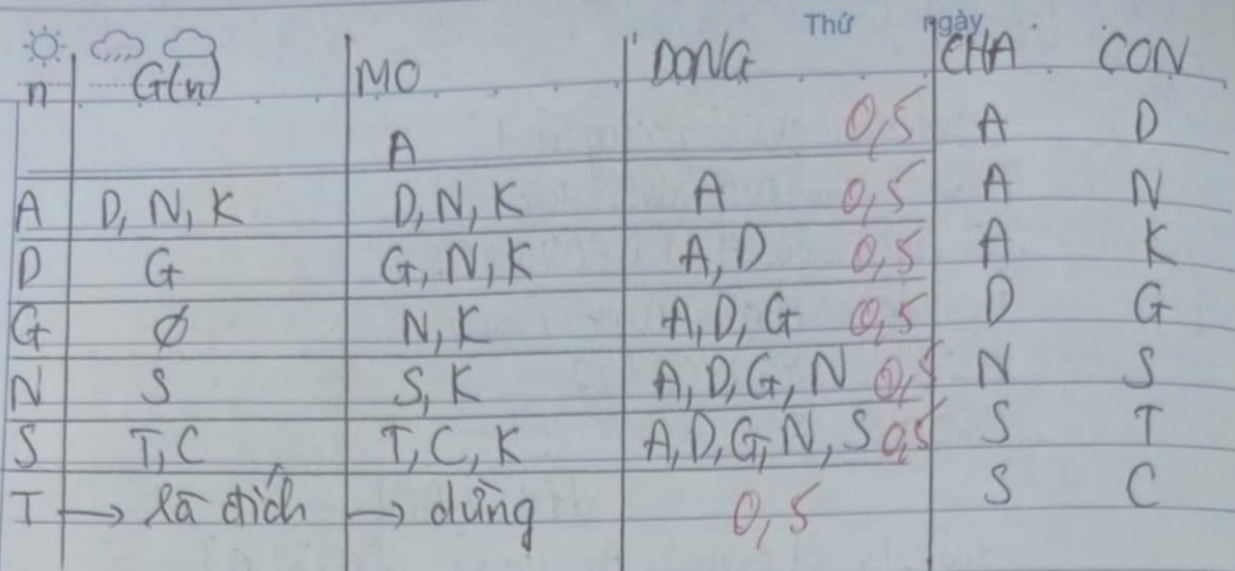 Thứ ngày
n G(n) MO DONG CHA CON
A 0,5 A D
A D, N, K D, N, K A 0,5 A N
D G G, N, K A, D 0,5 A K
G Ø N, K A, D, G 0,5 D G
N S S, K A, D, G, N 0,5 N S
S T, C T, C, K A, D, G, N, S 0,5 S T
T → là đích → dừng 0,5 S C